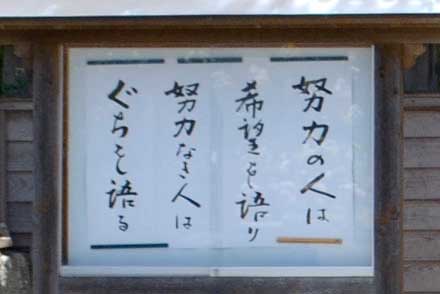 努力の人は
希望を語り
努力なき人は
ぐちを語る